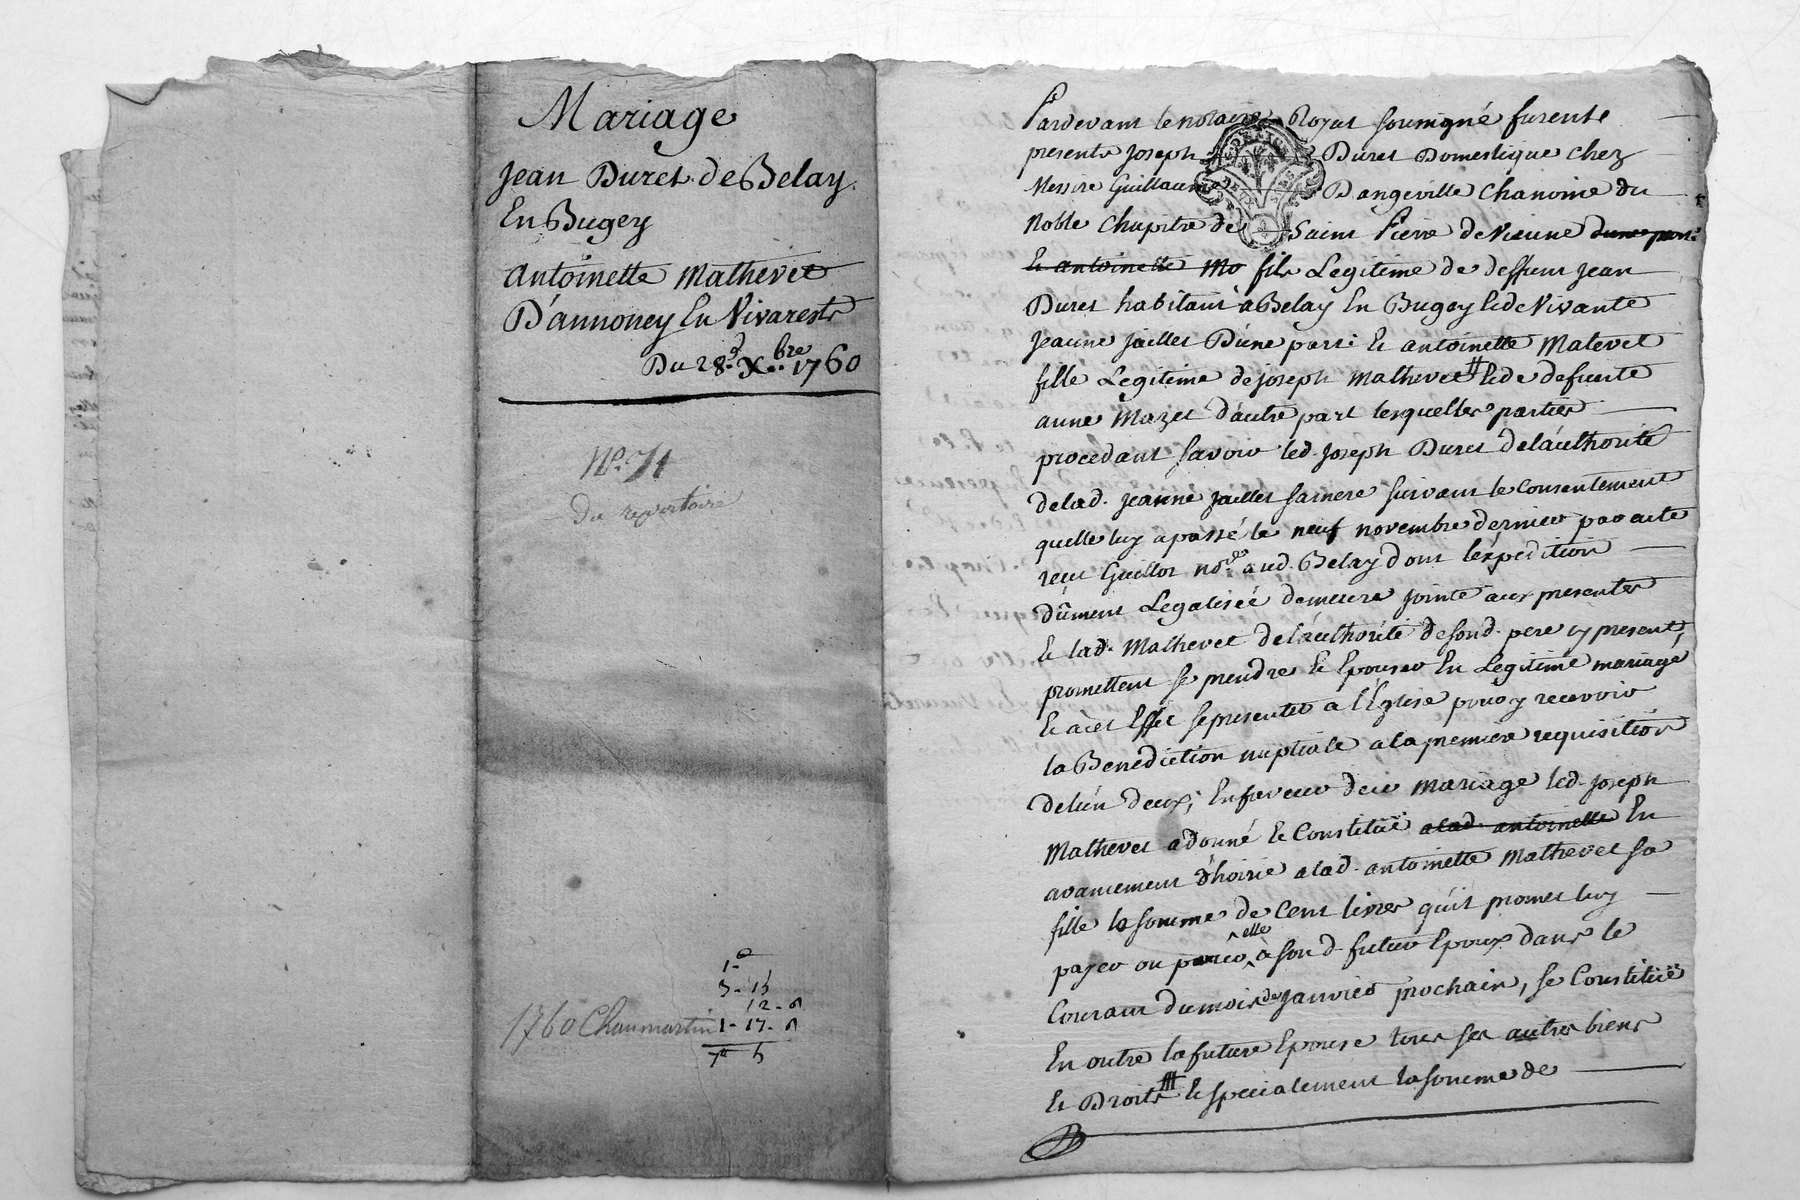 Mariage
Jean Duret de Belay
En Bugey
antoinette Mathevet
D'annoney En Vivarests
Du 28.d X.bre 1760
No. 71
Du repertoire
1-
5-15
12-6
1760 Chaumartin 1-17-6
7 5
Pardevant le notaire Royal soussigné furente
presents Joseph Duret Domestique chez
Messire Guillaume Dangeville Chanoine du
Noble Chapitre de Saint Pierre de Vienne d'une part
Et antoinette Ma fils Legitime de deffunt Jean
Duret habitant a Belay En Bugey & de Vivante
Jeanne Jaillet D'une part: Et antoinette Matevet
fille Legitime de joseph Mathevet # & de defuncte
anne Mazet d'autre part lesquelles parties
procedant savoir led. Joseph Duret de l'aûthorité
de lad. Jeanne Jaillet sa mere suivant le Consentement
quelle luy a passé le neuf novembre dernier par acte
reçu Guillot no.re aud. Belay dont l'expedition
dûment Legalisée demeure jointe aux presentes
Et lad. Mathevet de l'aûthorité de sond. pere icy present,
promettent se prendre Et Epouser En Legitime mariage
Et a cet Effet se presenter a l'Eglise pour y recevoir
la Benediction nuptiale a la premiere requisition
de l'un deux; En faveur de ce mariage led. Joseph
Mathevet a donné Et Constitué a lad. antoinette En
avancement d'hoirie a lad. antoinette Mathevet sa
fille la somme de Cent livres qu'il promet luy
payer ou pour elle à sond. futur Epoux dans le
Courant du mois de Janvier prochain, se Constitüe
En outre la future Epouse tous ses autres biens
Et Droits # Et specialement la somme de